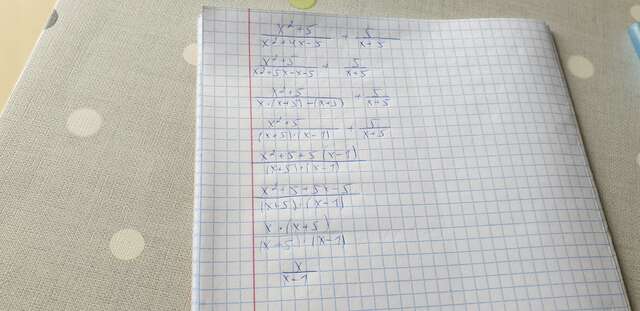 x²+5/x²+4x-5 + 5/x+5
x²+5/x²+5x-x-5 + 5/x+5
x²+5/x·(x+5)-(x+5) + 5/x+5
x²+5/(x+5)·(x-1) + 5/x+5
x²+5+5(x-1)/(x+5)·(x-1)
x²+5+5x-5/(x+5)·(x-1)
x·(x+5)/(x+5)·(x-1)
x/x-1